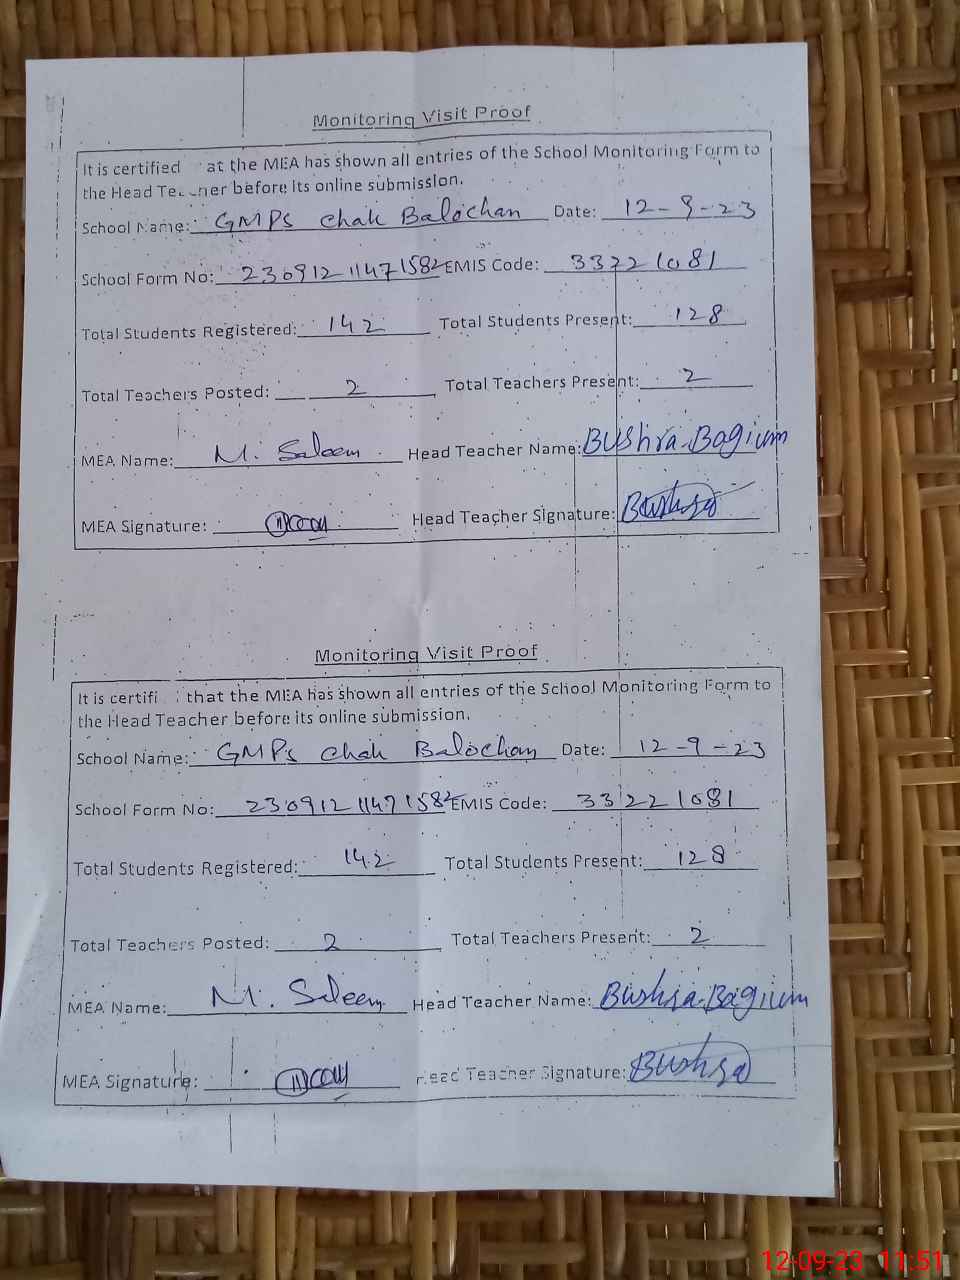 Monitoring Visit Proof
It is certified at the MEA has shown all entries of the School Monitoring Form to
the Head Teacher before its online submission.
School Name: GMPS Chak Balochan Date: 12-9-23
School Form No: 23091211471582 EMIS Code: 33221081
Total Students Registered: 142 Total Students Present: 128
Total Teachers Posted: 2 Total Teachers Present: 2
MEA Name: M. Saleem Head Teacher Name: Bushra Bagium
MEA Signature: Head Teacher Signature: Bushra
Monitoring Visit Proof
It is certifi that the MEA has shown all entries of the School Monitoring Form to
the Head Teacher before its online submission.
School Name: GMPS Chak Balochan Date: 12-9-23
School Form No: 23091211471582 EMIS Code: 33221081
Total Students Registered: 142 Total Students Present: 128
Total Teachers Posted: 2 Total Teachers Present: 2
MEA Name: M. Saleem Head Teacher Name: Bushra Bagium
MEA Signature: Head Teacher Signature: Bushra
12-09-23 11:51